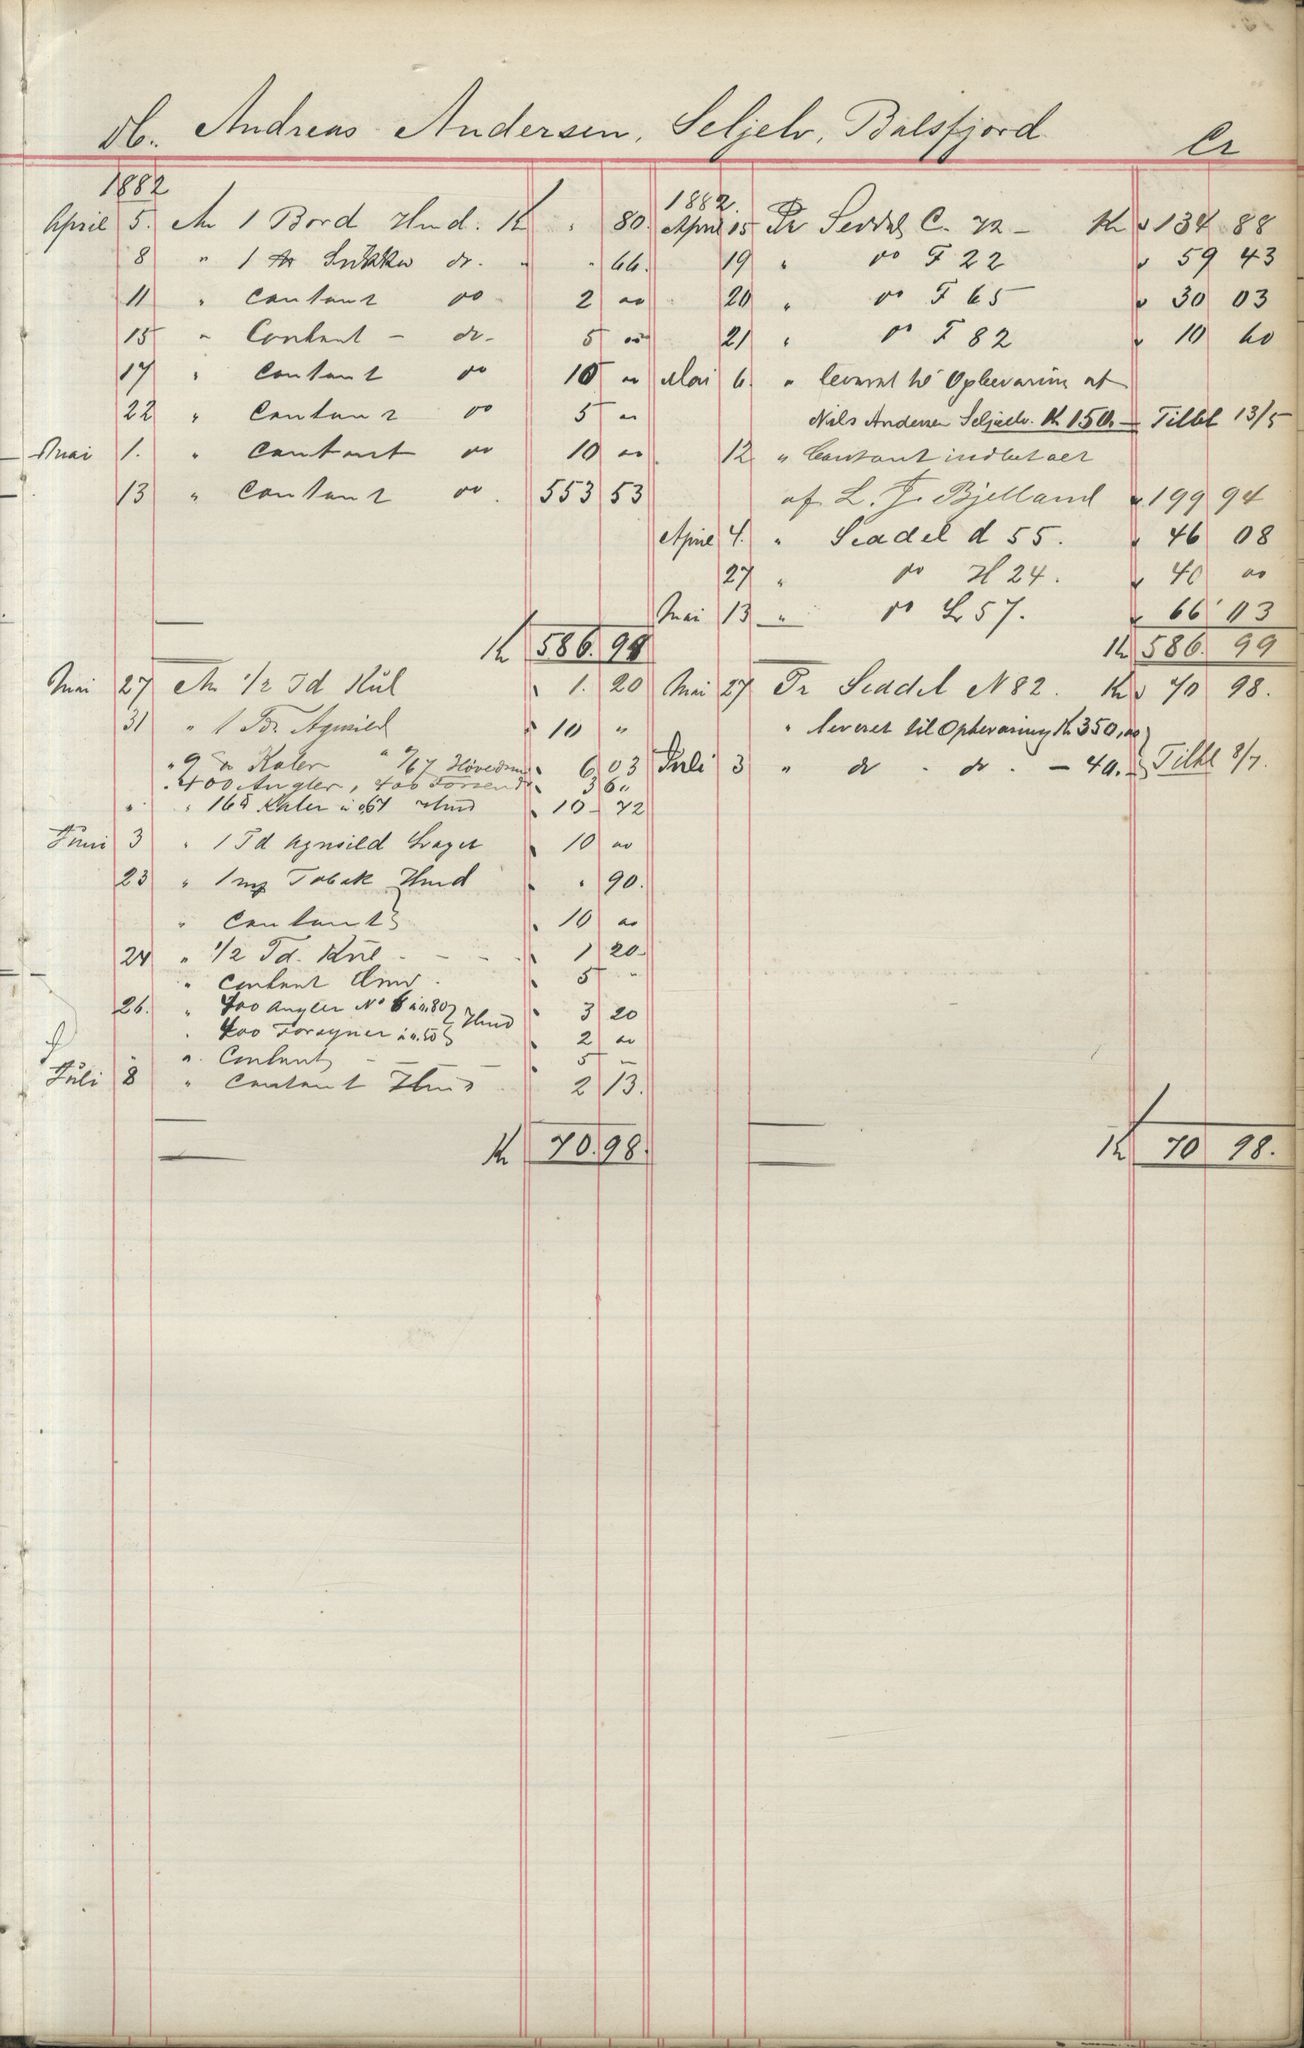 Db. Andreas Andersen, Seljelv, Balsfjord Cr
1882
April 5. An 1 Bord Hmd. Kr " 80.
8 " 1 Sukker do. " " 66.
11 " Contant do 2 00
15 " Contant - do. 5 00
17 " Contant do 10 00
22 " Contant do 5 00
Mai 1. " Contant do 10 00
13 " Contant do. 553 53
Kr 586. 99
Mai 27 An 1/2 Td Kul 1. 20
31 " 1 Td. Agnsild 10 "
" 9 Kaler " 0/67 6 03
" 400 Angler, 400 3 60
" " 16 Kaler a 0,67 Hmd 10 - 72
Juni 3 " 1 Td Agnsild 10 00
23 " 1 mp Tobak Hmd " 90.
" Contant 10 00
24 " 1/2 Td. Kul - - - 1 20
" Contant Hmd. 5 "
26. " 400 Angler No 6 a 0.80 Hmd 3 20
" 400 Forsyner a 0.50 2 00
" Contant - 5 -
Juli 8 " Contant Hmd 2 13.
Kr 70. 98.
1882
April 15 Pr Seddel C. 72 - Kr 134 88
19 " do F 22 " 59 43
20 " do F 65 " 30 03
21 " do F 82 " 10 60
Mai 6. " leveret til Opbevaring af
Nils Andersen Seljelv. Kr 150. - Tilbt 13/5
12 " Contant indbetalt
af L. J. Bjelland " 199 94
April 4. " Seddel d 55. " 46 08
27 " do H 24. " 40 00
Mai 13 " do L 57. " 66 03
Kr 586. 99
Mai 27 Pr Seddel N 82. Kr 70 98.
" leveret til Opbevaring Kr 350,00
Juli 3 " do - do. - 40. - Tilbt 8/7.
Kr 70 98.